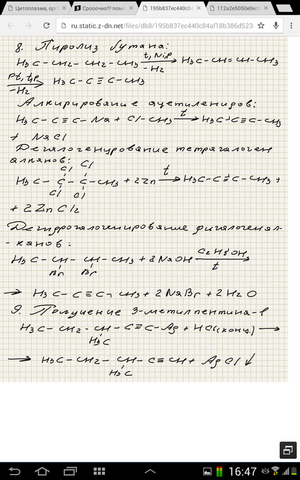 Цитоплазма, ор
Срооочно!!! помо
195b837ec440c8
112a2e5050e0e
ru.static.z-dn.net/files/db8/195b837ec440c84af18b386d523
8. Пиролиз бутана:
H₃C-CH₂-CH₂-CH₃ →(t, Ni, p / -H₂) H₃C-CH=CH-CH₃
→(Pt, t, p / -H₂) H₃C-C≡C-CH₃
Алкирирование ацетиленов:
H₃C-C≡C-Na + Cl-CH₃ →(t) H₃C-C≡C-CH₃
+ NaCl
Дегалогенирование тетрагалоген
алканов:
Cl Cl
H₃C-C-C-CH₃ + 2Zn →(t) H₃C-C≡C-CH₃ +
Cl Cl
+ 2ZnCl₂
Дегидрогалогенирование дигалогенал-
-канов:
H₃C-CH-CH-CH₃ + 2NaOH →(C₂H₅OH / t)
Br Br
→ H₃C-C≡C-CH₃ + 2NaBr + 2H₂O
9. Получение 3-метилпентина-1
H₃C-CH₂-CH-C≡C-Ag + HCl(конц) →
H₃C
→ H₃C-CH₂-CH-C≡CH + AgCl↓
H₃C
16:47